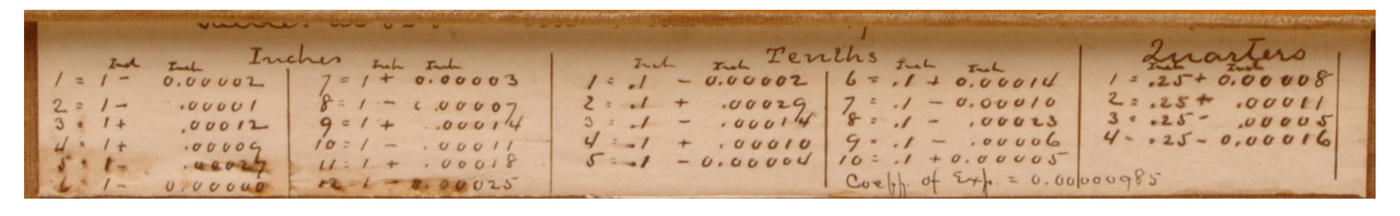 Inches
Inch Inch
1 = 1 - 0.00002
2 = 1 - .00001
3 = 1 + .00012
4 = 1 + .00009
5 = 1 - .00027
6 1 - 0.00000
Inch Inch
7 = 1 + 0.00003
8 = 1 - 0.00007
9 = 1 + .00014
10 = 1 - .00011
11 = 1 + .00018
12 1 - 0.00025
Tenths
Inch Inch
1 = .1 - 0.00002
2 = .1 + .00029
3 = .1 - .00014
4 = .1 + .00010
5 = .1 - 0.00004
Inch Inch
6 = .1 + 0.00014
7 = .1 - 0.00010
8 = .1 - .00023
9 = .1 - .00006
10 = .1 + 0.00005
Coeff. of Exp. = 0.00000985
Quarters
Inch Inch
1 = .25 + 0.00008
2 = .25 + .00011
3 = .25 - .00005
4 = .25 - 0.00016